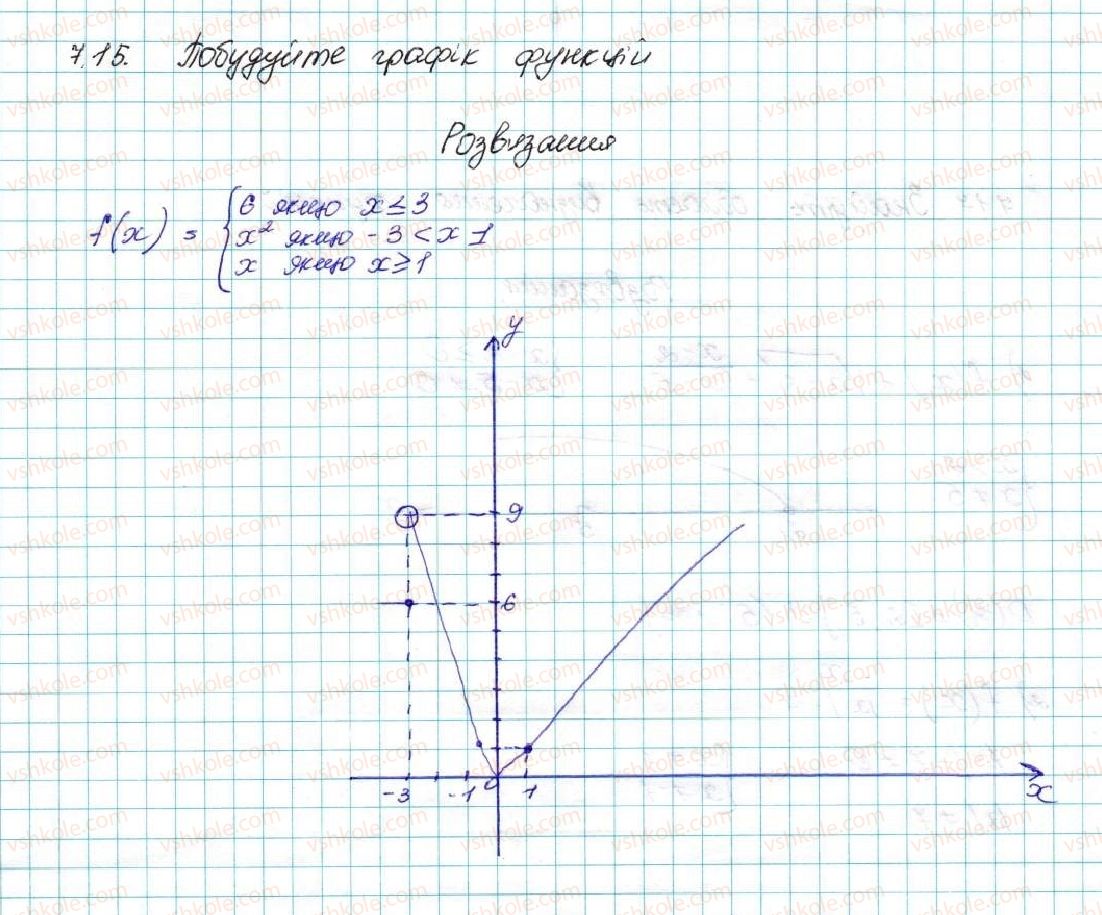 7.15. Побудуйте графік функцій
Розв'язання
f(x) = { 6 якщо x ≤ 3
x² якщо -3 < x 1
x якщо x ≥ 1
y
9
6
-3 -1 0 1 x